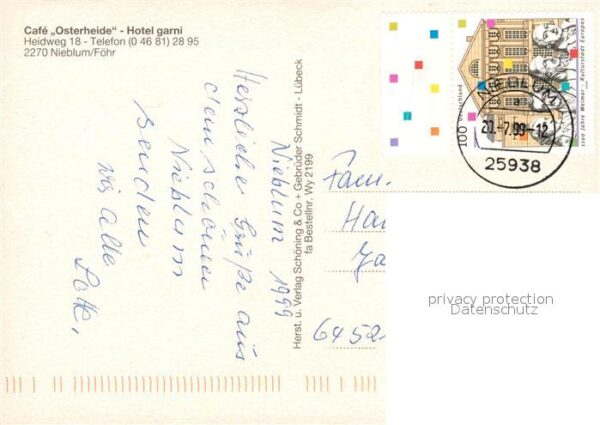 Café „Osterheide“ - Hotel garni
Heidweg 18 - Telefon (0 46 81) 28 95
2270 Nieblum/Föhr
Nieblum 1999
Herzliche Grüße aus
dem schönen
Nieblum
senden
alle
Herst. u. Verlag Schöning & Co + Gebrüder Schmidt - Lübeck
fa Bestellnr. Wy 2199
100 Deutschland
1100 Jahre Weimar - Kulturstadt Europas
1999
NIEBLUM
a
20.-7.99-12
25938
Fam.
Ha
6452
privacy protection
Datenschutz